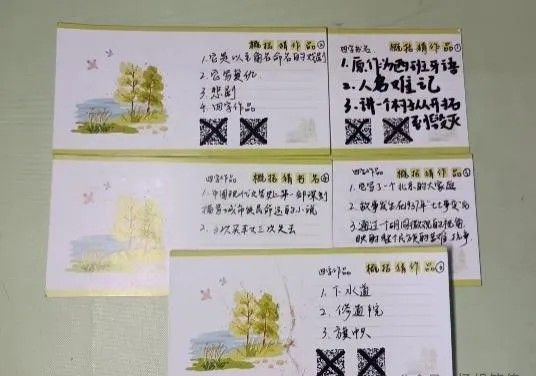 概括猜作品
1.它是以主角名命名的戏剧
2.它写复仇
3.悲剧
4.四字作品
四字书名
概括猜作品
1.原作为西班牙语
2.人名难记
3.讲一个村子从开拓
到毁灭
四字作品
概括猜书名
1.中国现代文学史上第一部深刻
描写城市贫民命运的小说
2.三次买车又三次失去
四字作品
概括猜作品
1.它写了一个北京的大家庭
2.故事发生在1937年"七七事变"后
3.通过一个胡同微观的视角
映射整个民族的苦难抗争
四字作品
概括猜作品
1.下水道
2.修道院
3.旗帜